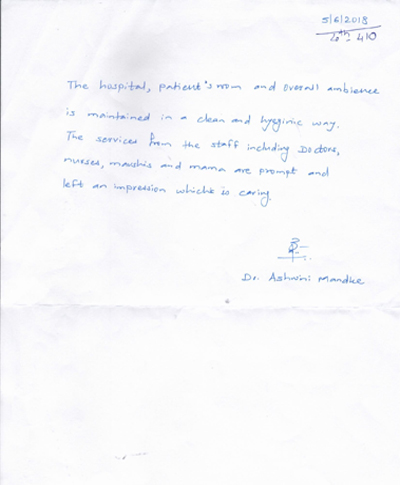 5/6/2018
410
The hospital, patient's room and overall ambience
is maintained in a clean and hyeginic way.
The services from the staff including Doctors,
nurses, maushis and mama are prompt and
left an impression which is caring.
Dr. Ashwini Mandke